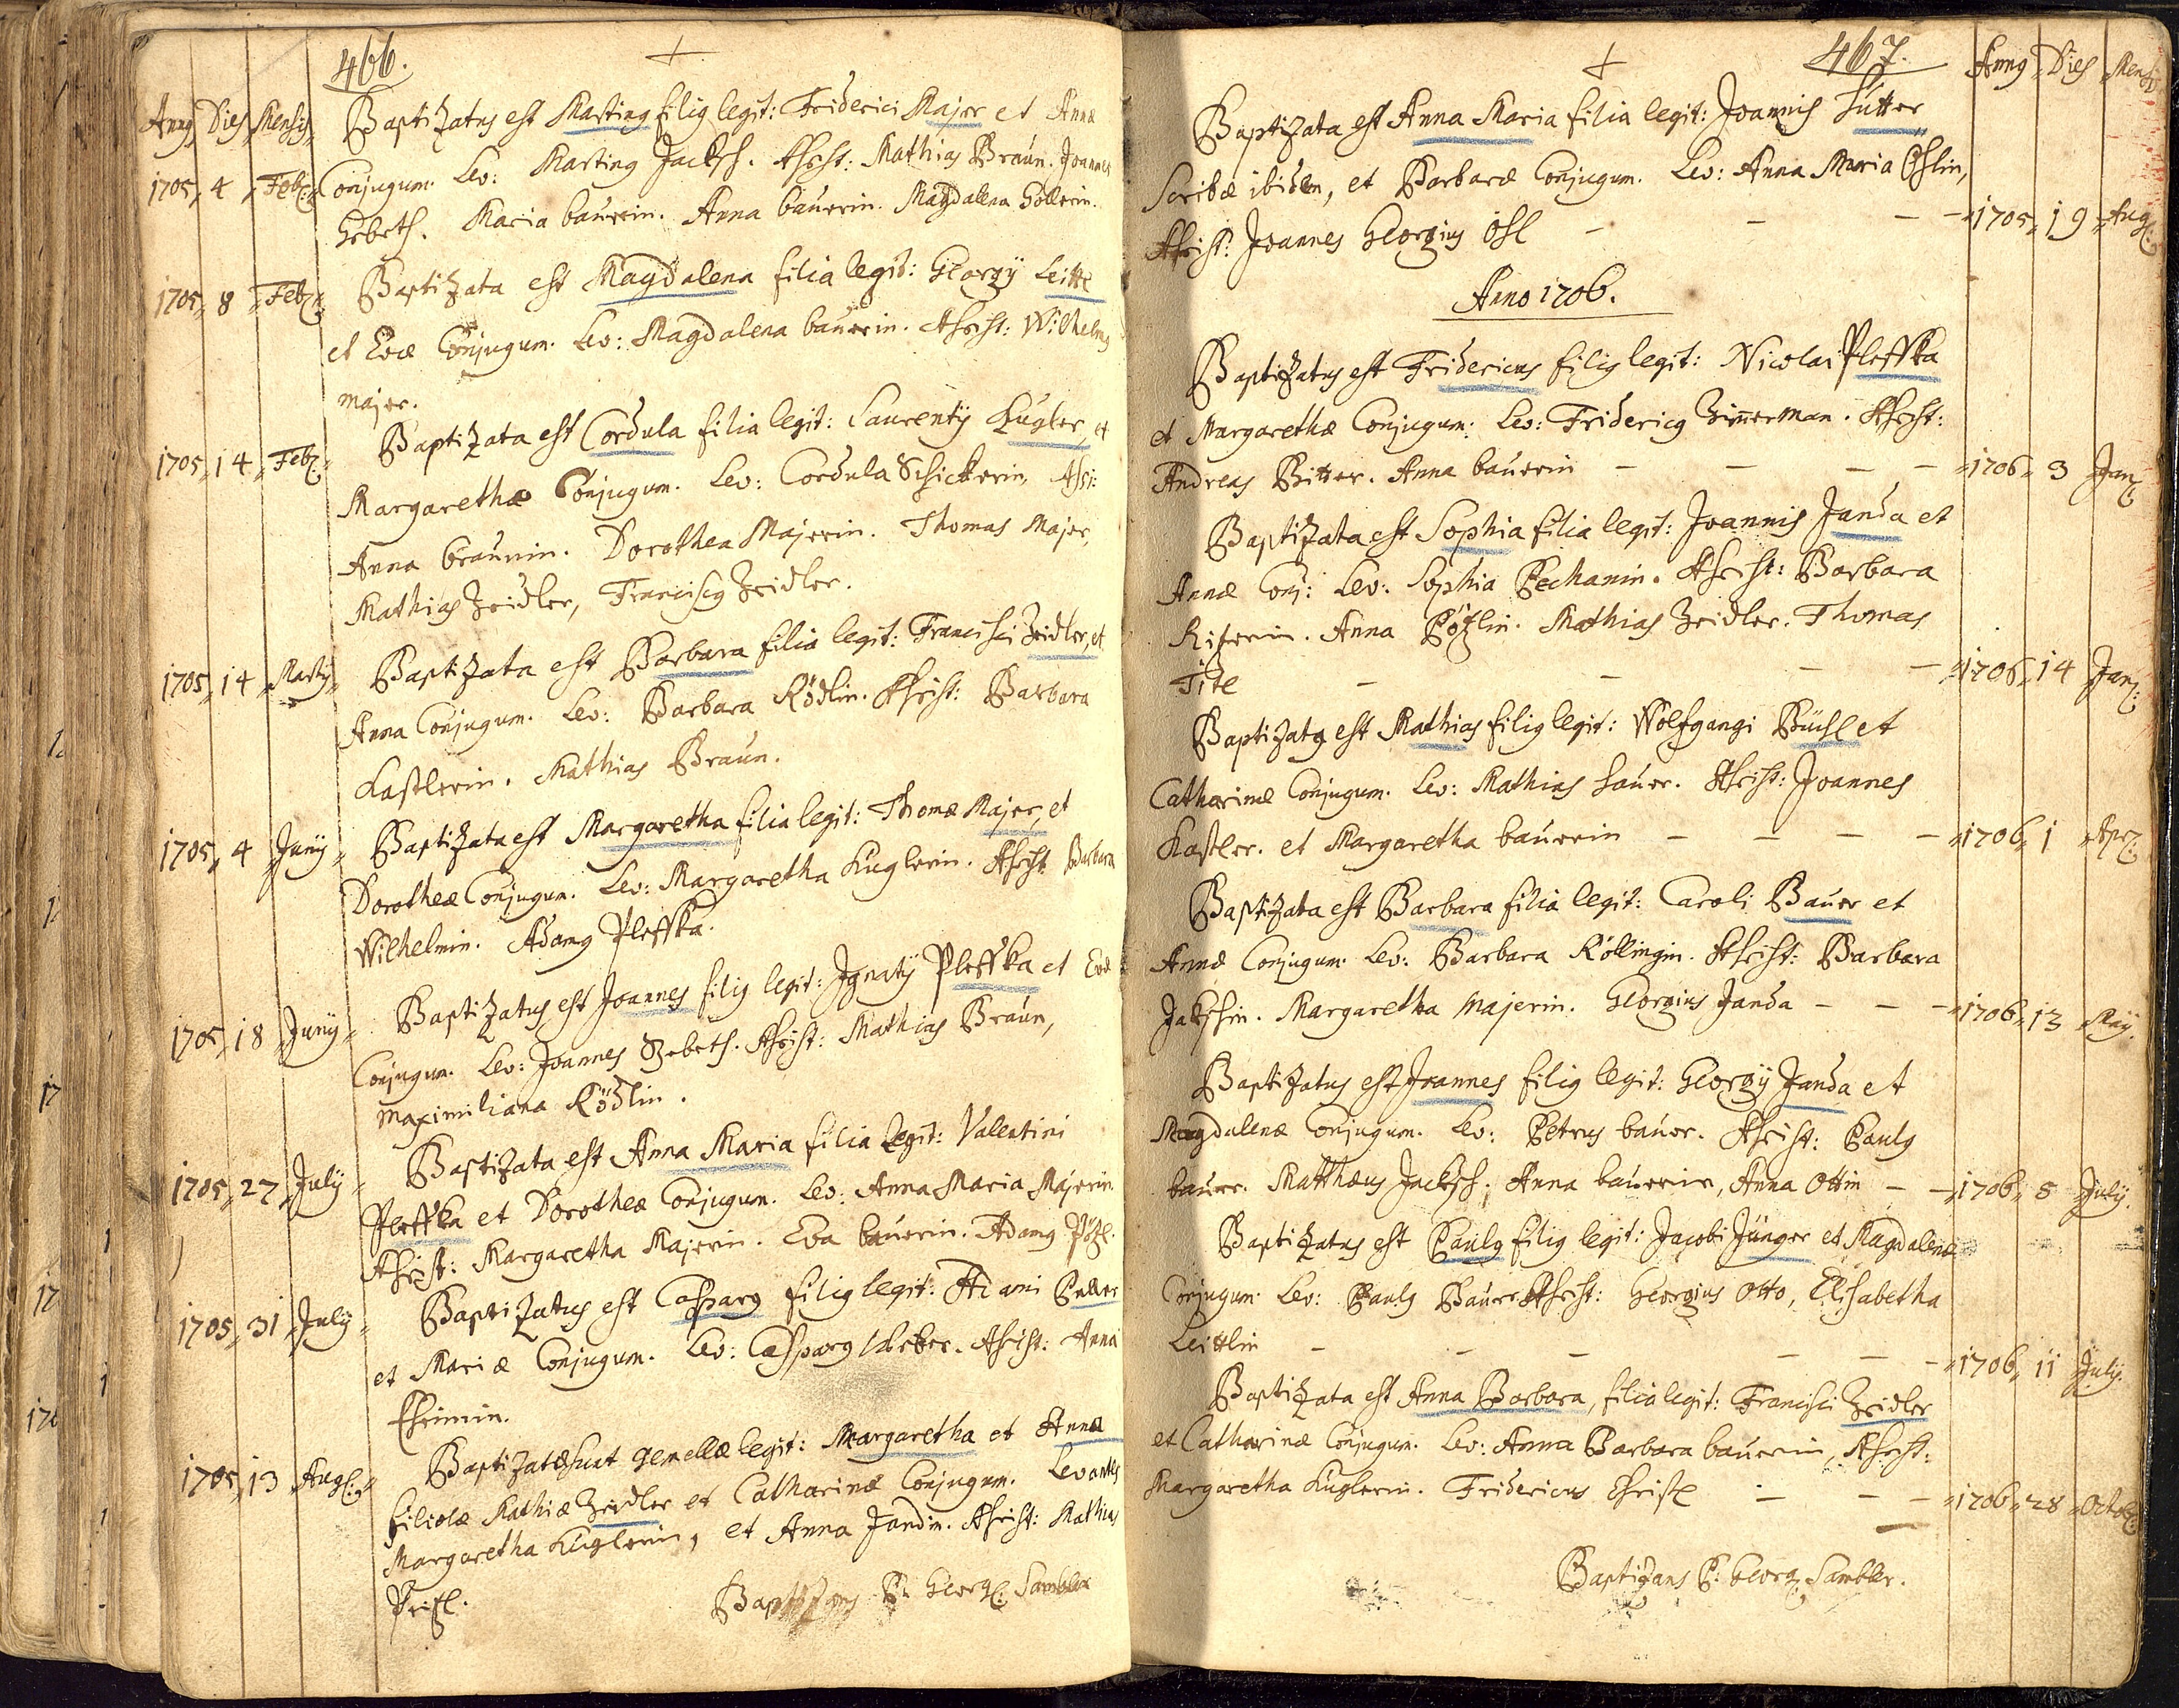 466.
Annus Dies Mensis
Baptizatus est Martinus filius legit: Friderici Majer et Annæ
1705 4 Feb:
Conjugum. Lev: Martinus Jacksch. Assist: Mathias Braun. Joannes
Gebeth. Maria baurin. Anna baurin. Magdalena Gollerin.
1705 8 Feb:
Baptizata est Magdalena filia legit: Georgÿ Leittl
et Evæ Conjugum. Lev: Magdalena baurin. Assist: Wilhelmus
majer.
1705 14 Feb:
Baptizata est Cordula filia legit: Laurentÿ Kugler, et
Margarethæ Conjugum. Lev: Cordula Schickerin, Assi:
Anna braunin. Dorothea Majerin. Thomas Majer,
Mathias Zeidler, Franciscus Zeidler.
1705 14 Martÿ
Baptizata est Barbara filia legit: Francisci Zeidler, et
Anna Conjugum. Lev: Barbara Rödlin. Assist: Barbara
Kastlerin. Mathias Braun.
1705 4 Junÿ
Baptizata est Margaretha filia legit: Thomæ Majer, et
Dorotheæ Conjugum. Lev: Margaretha Kuglerin. Assist Barbara
Wilhelmin. Adamus Pleffka.
1705 18 Junÿ
Baptizatus est Joannes filius legit: Ignatÿ Pleffka et Evæ
Conjugum. Lev: Joannes Gebeth. Assist: Mathias Braun,
Maximiliana Rödlin.
1705 27 Julÿ
Baptizata est Anna Maria filia legit: Valentini
Pleffka et Dorotheæ Conjugum. Lev: Anna Maria Majerin.
Assist: Margaretha Majerin. Eva baurin. Adamus Pötzl.
1705 31 Julÿ
Baptizatus est Casparus filius legit: Adami
et Mariæ Conjugum. Lev: Casparus Weber. Assist: Anna
1705 13 Aug:
Baptizatæ sunt gemellæ legit: Margaretha et Anna
filiolæ Mathiæ Zeidler et Catharinæ Conjugum. Levantes
Margaretha Kuglerin, et Anna Jandin. Assist: Mathias
Baptizans P: Georg: Sambler
467.
Annus Dies Mensis
Baptizata est Anna Maria filia legit: Joannis Sutter
Scribæ ibidem, et Barbaræ Conjugum. Lev: Anna Maria Öslin,
Assist: Joannes Georgius Ösl - - - 1705 19 Aug:
Anno 1706.
Baptizatus est Fridericus filius legit: Nicolai Pleffka
et Margarethæ Conjugum: Lev: Fridericus Zimerman. Assist:
Andreas Bitter. Anna baurin - - - - 1706 3 Jan:
Baptizata est Sophia filia legit: Joannis Janda et
Annæ Conj: Lev: Sophia Pechanin. Assist: Barbara
Anna Pötzlin. Mathias Zeidler. Thomas
Titl - - - - 1706 14 Jan:
Baptizatus est Mathias filius legit: Wolfgangi Büchl et
Catharinæ Conjugum. Lev: Mathias Saurer. Assist: Joannes
Kastler. et Margaretha baurin - - - - 1706 1 Apr:
Baptizata est Barbara filia legit: Caroli Baurer et
Annæ Conjugum. Lev: Barbara Röllingin. Assist: Barbara
Jakschin. Margaretha Majerin. Georgius Janda - - - 1706 13 Maÿ.
Baptizatus est Joannes filius legit: Georgÿ Janda et
Magdalenæ Conjugum. Lev: Petrus baurer. Assist: Paulus
baurer. Matthæus Jacksch. Anna baurin, Anna Ottin - - 1706 5 Julÿ.
Baptizatus est Paulus filius legit: Jacobi Jünger et Magdalenæ
Conjugum Lev: Paulus Baurer Assist: Georgius Otto, Elisabetha
Leittlin - - - - - - 1706 11 Julÿ.
Baptizata est Anna Barbara, filia legit: Francisci Zeidler
et Catharinæ Conjugum. Lev: Anna Barbara baurin, Assist:
Margaretha Kuglerin. Fridericus Christl - - - 1706 28 Octob:
Baptizans P: Georg Sambler.